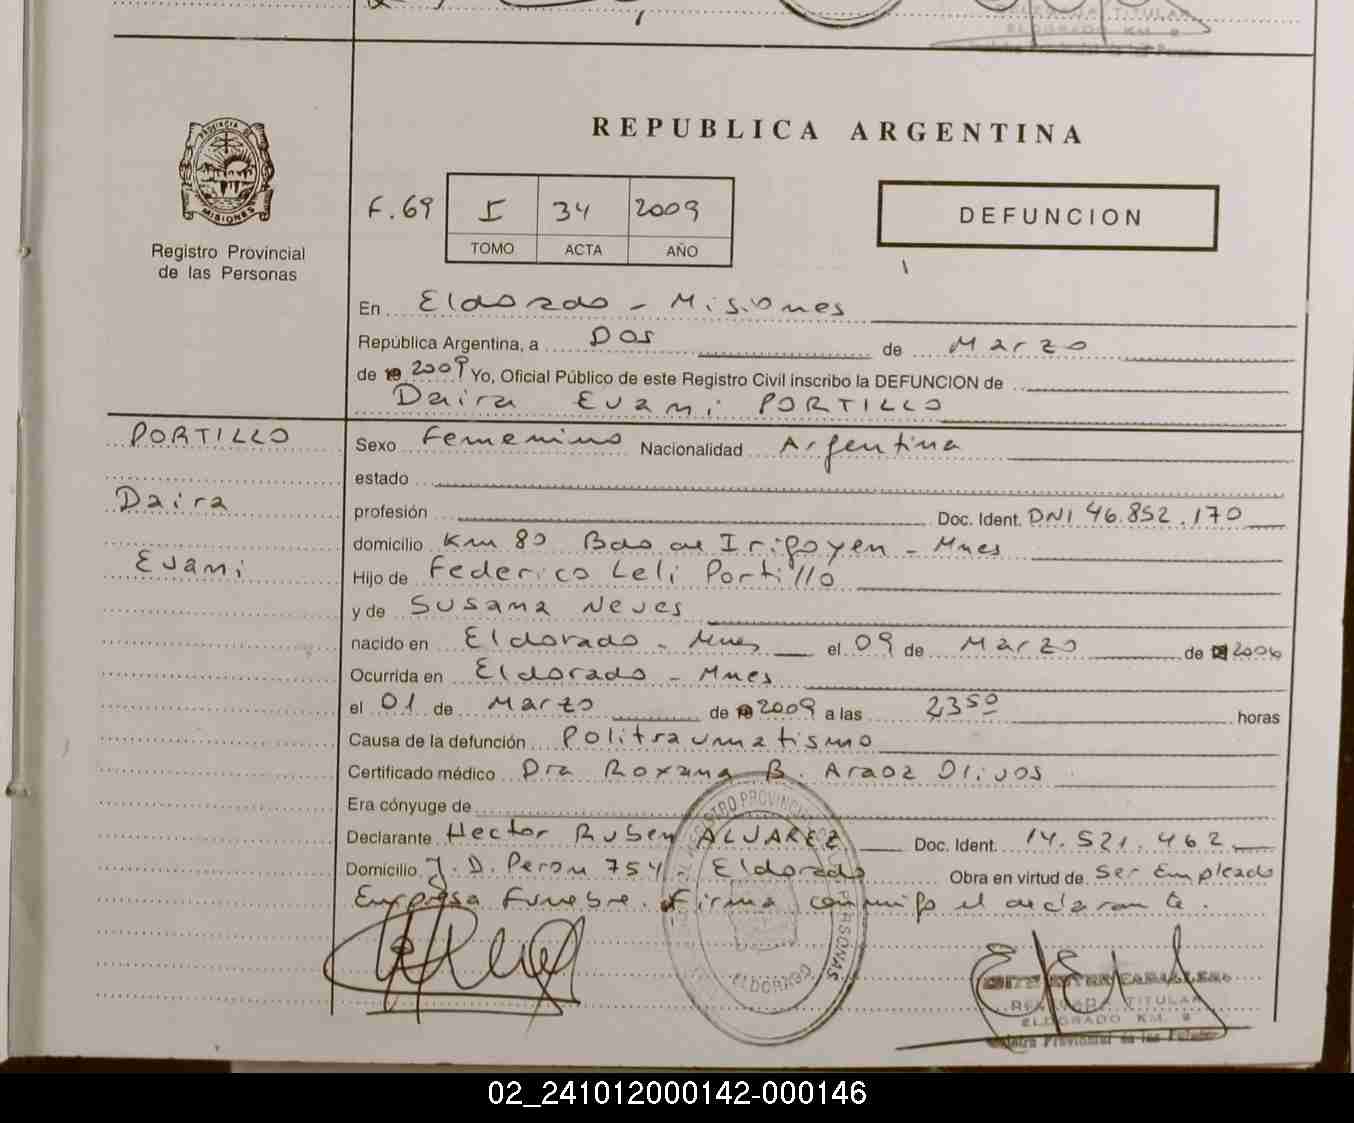 REPUBLICA ARGENTINA
PROVINCIA DE
MISIONES
Registro Provincial
de las Personas
F. 69 I 34 2009
TOMO ACTA AÑO
DEFUNCION
En Eldorado - Misiones
República Argentina, a Dos de Marzo
de 2009 Yo, Oficial Público de este Registro Civil inscribo la DEFUNCION de
Daira Evami PORTILLO
PORTILLO
Daira
Evami
Sexo Femenino Nacionalidad Argentina
estado
profesión Doc. Ident. DNI 46.852.170
domicilio Km 80 Bdo de Irigoyen - Mnes
Hijo de Federico Leli Portillo
y de Susana Neves
nacido en Eldorado - Mnes el 09 de Marzo de 2006
Ocurrida en Eldorado - Mnes
el 01 de Marzo de 2009 a las 23 50 horas
Causa de la defunción Politraumatismo
Certificado médico Dra Roxana B. Araoz Olivos
Era cónyuge de
Declarante Hector Ruben ALVAREZ Doc. Ident. 14.521.462
Domicilio J. D. Peron 754 Eldorado Obra en virtud de Ser Empleado
Empresa Funebre. Firma conmigo el declarante.
REGISTRO PROVINCIAL DE LAS PERSONAS
ELDORADO
CABALLERO
TITULAR
ELDORADO KM. 9
Registro Provincial de las Personas
02_241012000142-000146